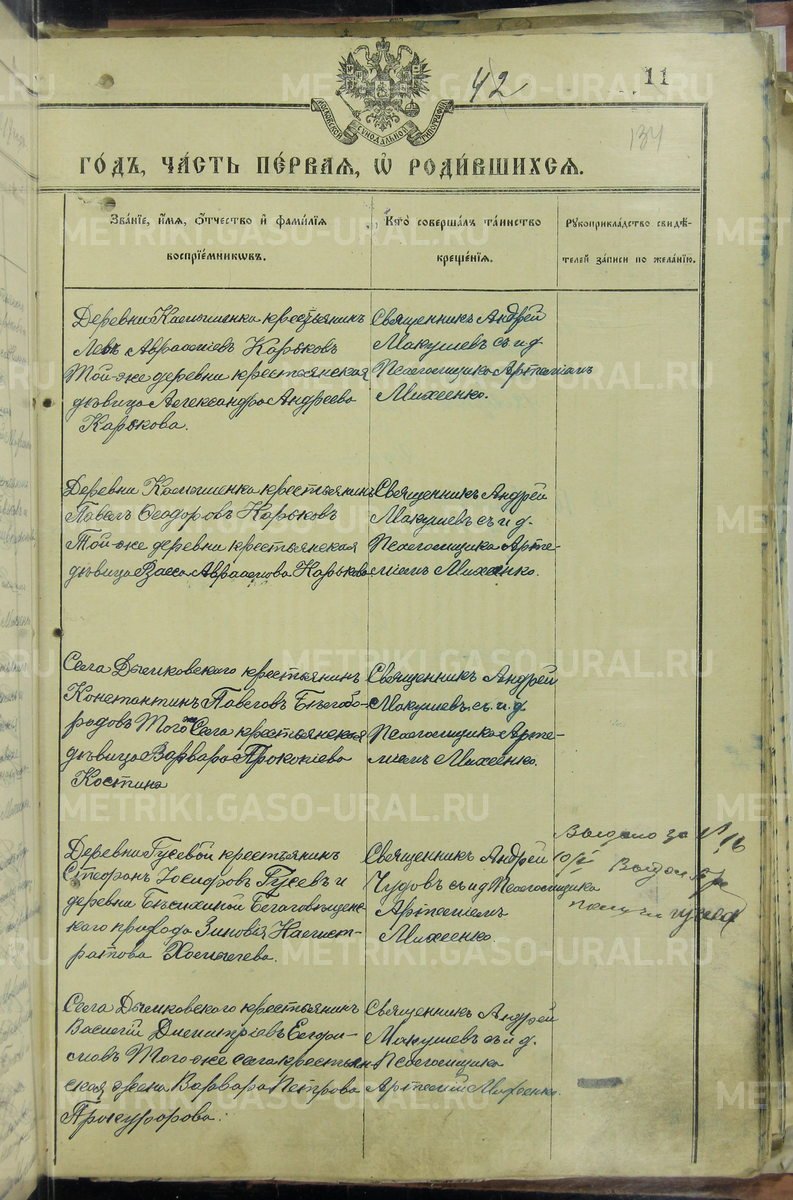 42
11
134
МОСКОВСКАЯ СѴНОДАЛЬНАЯ ТИПОГРАФІЯ
ГО́ДЪ, ЧА́СТЬ ПЕ́РВАЯ, Ѡ РОДИ́ВШИХСЯ.
Зва́ніе, и́мя, о́тчество и фами́лія воспріе́мниковъ.
Кто̀ соверша́лъ та́инство креще́нія.
Рукоприкла́дство свидѣ́телей за́писи по жела́нію.
Деревни Камышенка крестьянинъ
Левъ Авраамiевъ Карьковъ
Той-же деревни крестьянская
дѣвица Александра Андреева
Карькова.
Священникъ Андрей
Макушевъ съ и д.
Псаломщика Артемiемъ
Михеенко.
Деревни Камышенка крестьянинъ
Павелъ Ѳеодоровъ Карьковъ
Той-же деревни крестьянская
дѣвица Васса Авраамова Карькова
Священникъ Андрей
Макушевъ съ и д.
Псаломщика Арте-
мiемъ Михеенко.
Села Дымковскаго крестьянинъ
Константинъ Павловъ Бѣлобо-
родовъ Того же Села крестьянская
дѣвица Варвара Прокопiева
Костина
Священникъ Андрей
Макушевъ съ. и д.
Псаломщика Арте-
мiемъ Михеенко.
Деревни Гусевой крестьянинъ
Стефанъ Iосифовъ Гусевъ и
деревни Благовѣщен-
скаго прихода Зиновiя Калист-
ратова
Священникъ Андрей
Чудовъ съ и д Псаломщика
Артемiемъ
Михеенко.
Выдано за № 16
10/VI
Села Дымковскаго крестьянинъ
Василiй Димитрiевъ
Того-же села крестьян-
ская жена Варвара Петрова
Прокуророва.
Священникъ Андрей
Макушевъ съ и д.
Псаломщика
Артемiй Михеенко.
METRIKI.GASO-URAL.RU